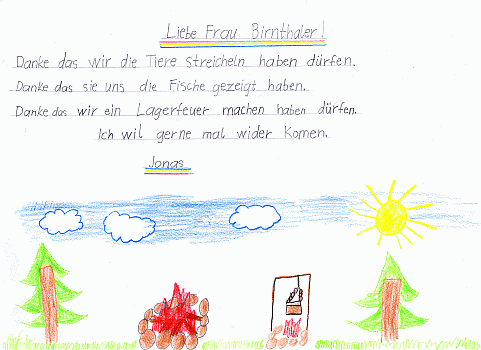 Liebe Frau Birnthaler!
Danke das wir die Tiere streicheln haben dürfen.
Danke das sie uns die Fische gezeigt haben.
Danke das wir ein Lagerfeuer machen haben dürfen.
Ich wil gerne mal wider Komen.
Jonas